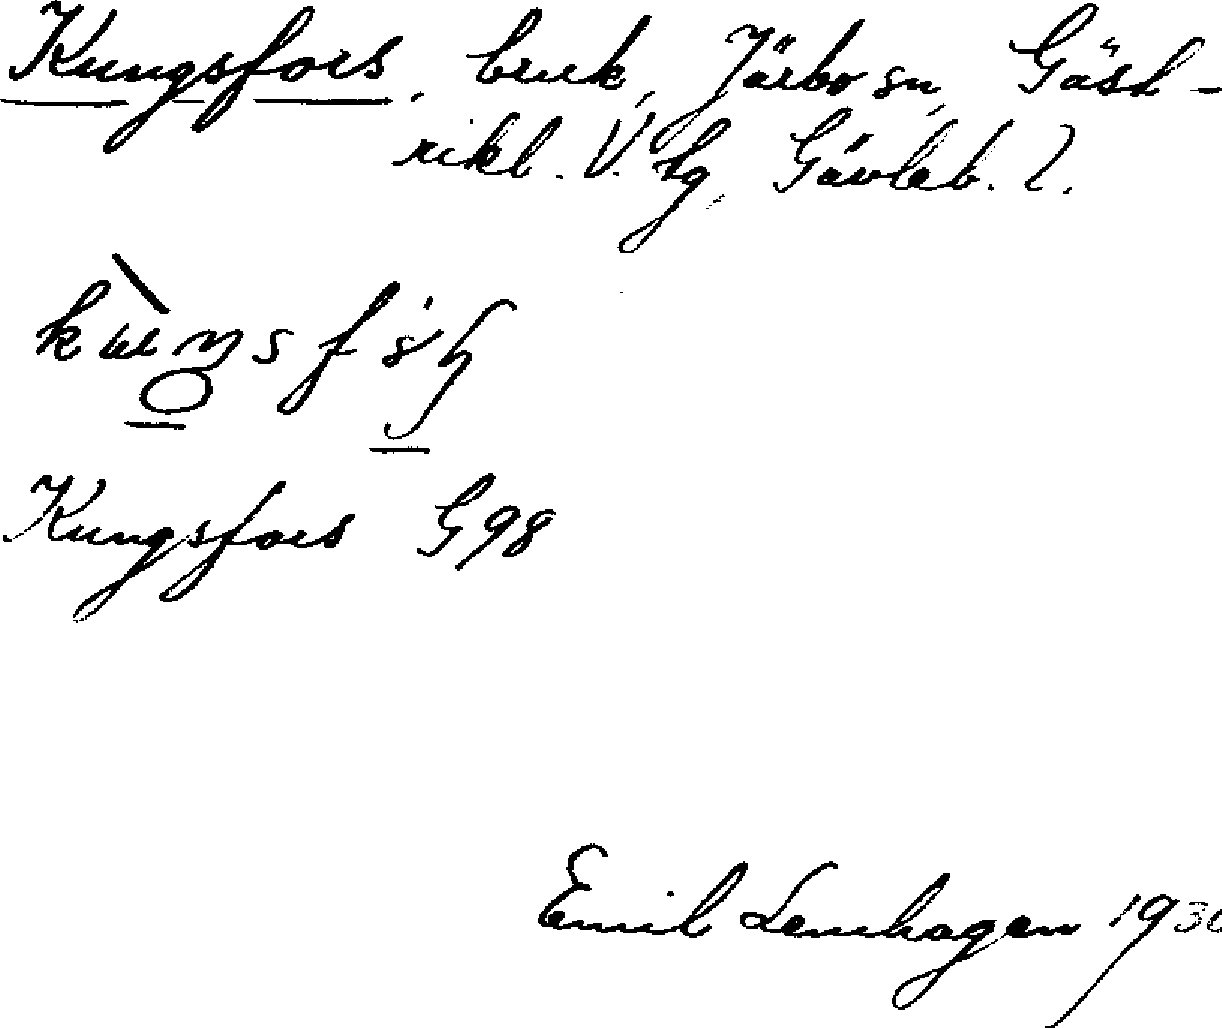 Kungsfors, bruk, Järbo sn, Gäst-
rikl. V. tg, Gävleb. l.
Kungsfors G98
Emil Lenhagen 193